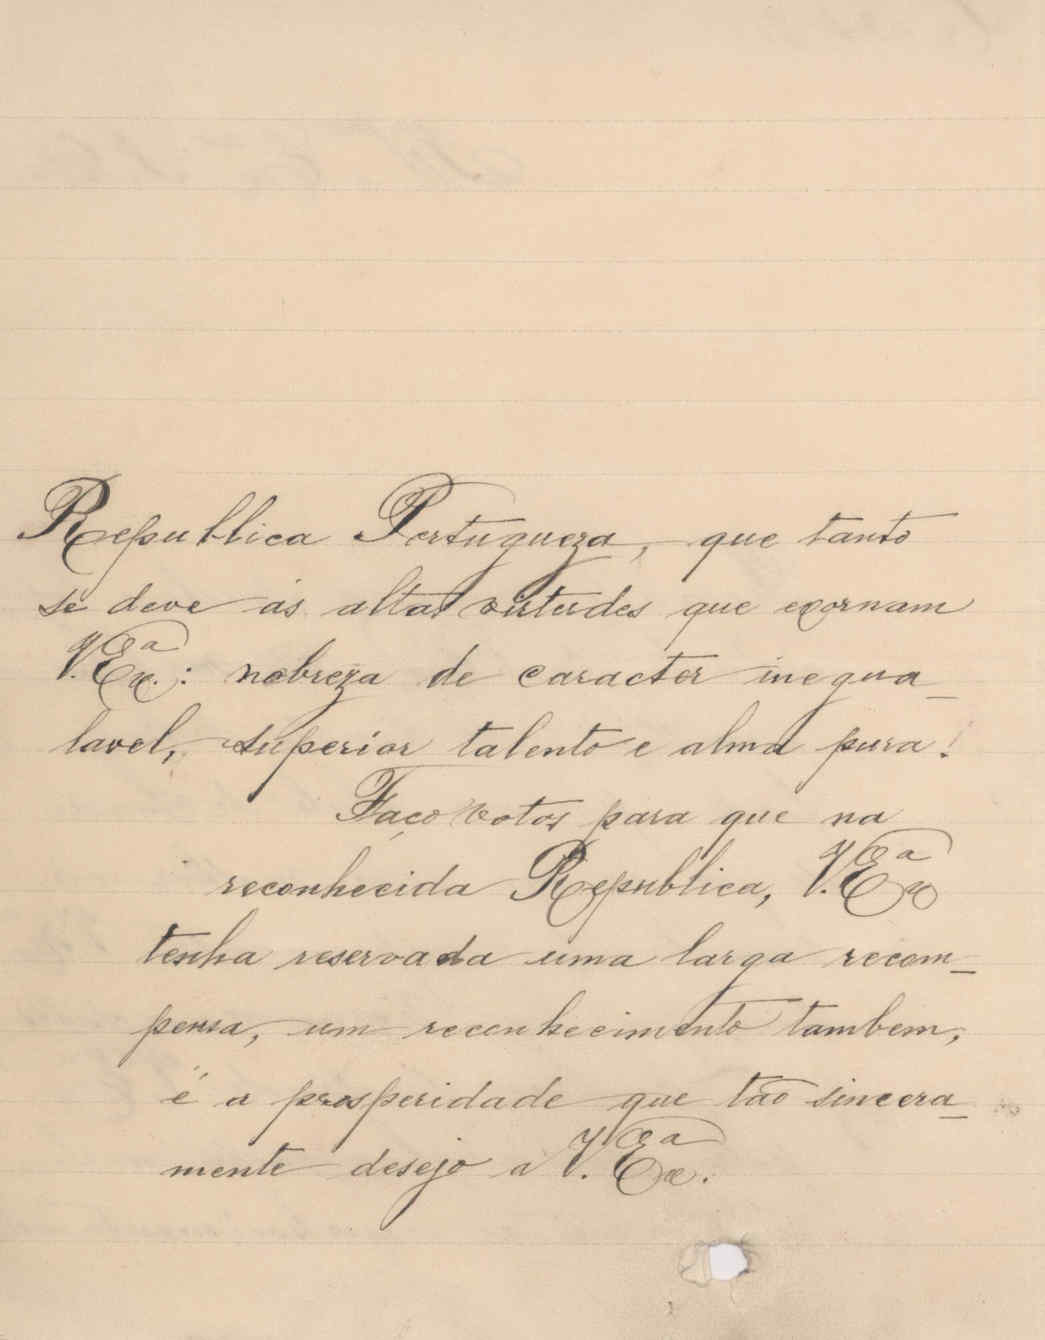 Republica Portugueza, que tanto
se deve ás altas virtudes que exornam
V. Exª.: nobreza de caracter inegua-
lavel, superior talento e alma pura!
Faço votos para que na
reconhecida Republica, V. Exª
tenha reservada uma larga recom-
pensa, um reconhecimento tambem,
é a prosperidade que tão sincera-
mente desejo a V. Exª.